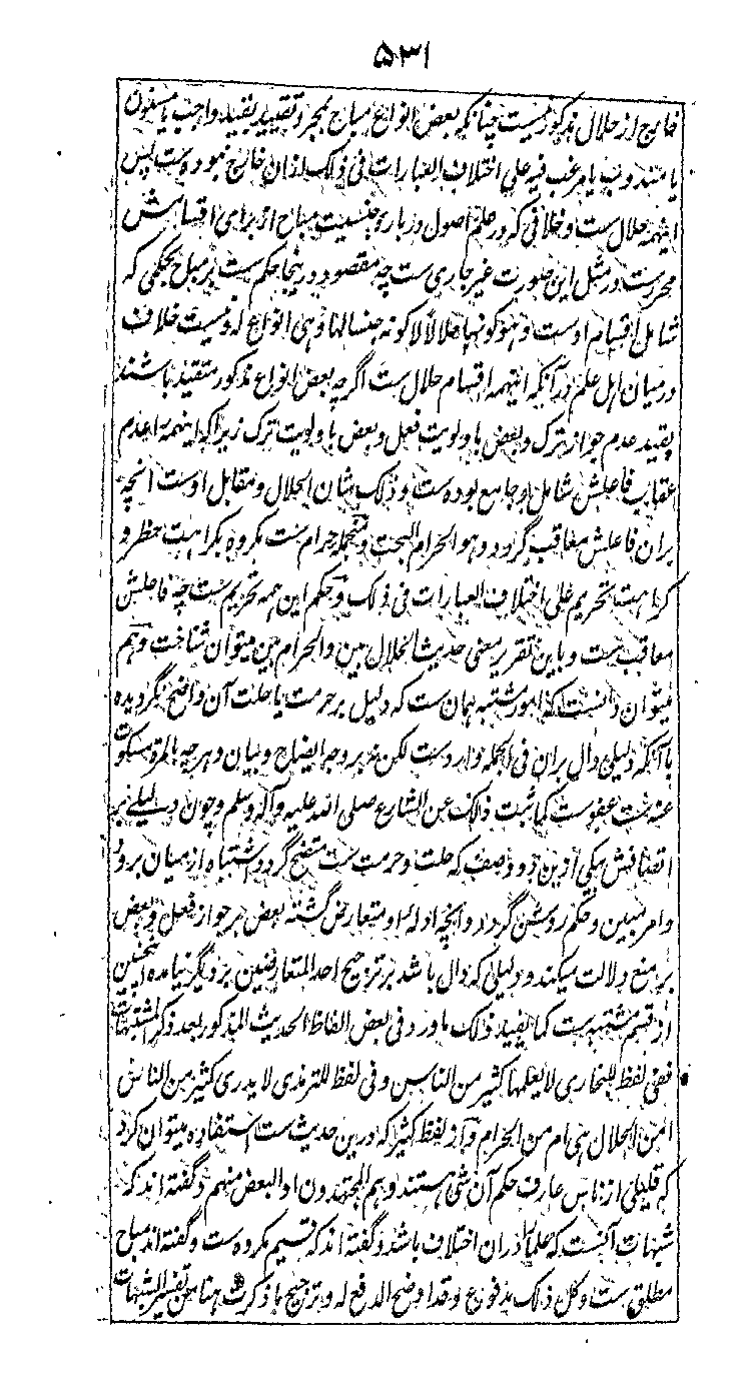 ۵۳۱
خارج از حلال مذکور نیست چنانکه بعض انواع مباح بمجرد تقیید بقید واجب یا مسنون
یا مندوب یا مرغب فیه علی اختلاف العبارات فی ذلک ازان خارج نبوده ست پس
اینهمه حلال ست و خلافی که در علم اصول درباره جنسیت مباح از برای اقسامش
محررست در مثل این صورت غیر جاری ست چه مقصود درینجا حکم ست بر مباح بحکمی که
شامل اقسام اوست و هو کونها حلالا لا کونه جنسا لها و هی انواع له و نیست خلاف
در میان اهل علم در آنکه اینهمه اقسام حلال ست اگرچه بعض انواع مذکور متقید باشند
بقید عدم جواز ترک و بعض باولویت فعل و بعض باولویت ترک زیرا که اینهمه را عدم
عقاب فاعلش شامل و جامع بوده ست و ذلک شان الحلال و مقابل اوست آنچه
بران فاعلش معاقب گردد و هو الحرام البحت و منجمله حرام ست مکروه بکراهت حظر و
کراهت تحریم علی اختلاف العبارات فی ذلک و حکم این همه تحریم ست چه فاعلش
معاقب ست و باین تقریر معنی حدیث الحلال بین والحرام بین میتوان شناخت و هم
میتوان دانست که امور مشتبه همان ست که دلیل بر حرمت یا حلت آن واضح نگردیده
با آنکه دلیلی دال بران فی الجمله وارد ست لکن نه بر وجه ایضاح و بیان و هرچه بالمرة مسکوت
عنه ست عفوست کما ثبت ذلک عن الشارع صلی الله علیه وآله وسلم و چون دلیلی بر
اتصافش بیکی ازین دو وصف که حلت و حرمت ست متضح گردد اشتباه از میان برود
و امر مبین و حکم روشن گردد و آنچه ادلهٔ او متعارض گشته بعض بر جواز فعل و بعض
بر منع دلالت میکند و دلیلی که دال باشد بر ترجیح احد المتعارضین بر دیگر نیامده اینچنین
از قسم مشتبه ست کما یفید ذلک ما ورد فی بعض الفاظ الحدیث المذکور بعد ذکر المشتبهات
ففی لفظ للبخاری لا یعلمها کثیر من الناس و فی لفظ للترمذی لا یدری کثیر من الناس
امن الحلال هی ام من الحرام و از لفظ کثیر که درین حدیث ست استفاده میتوان کرد
که قلیلی از ناس عارف حکم آن شی هستند و هم المجتهدون او البعض منهم و گفته اند که
شبهات آنست که علما را دران اختلاف باشد و گفته اند که قسیم مکروه ست و گفته اند مباح
مطلق ست و کل ذلک مدفوع و قد اوضح الدفع له و ترجیح ما ذکرت هنا من تفسیر الشبهات